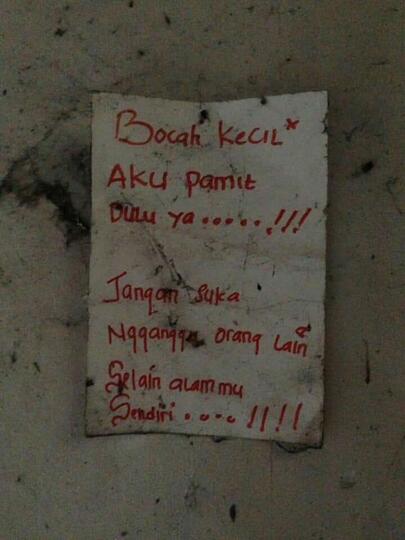 Bocah KeCIL*
AKU pamit
DULU ya.....!!!
Jangan suka
Ngganggu orang Lain²
Selain alammu
Sendiri....!!!!